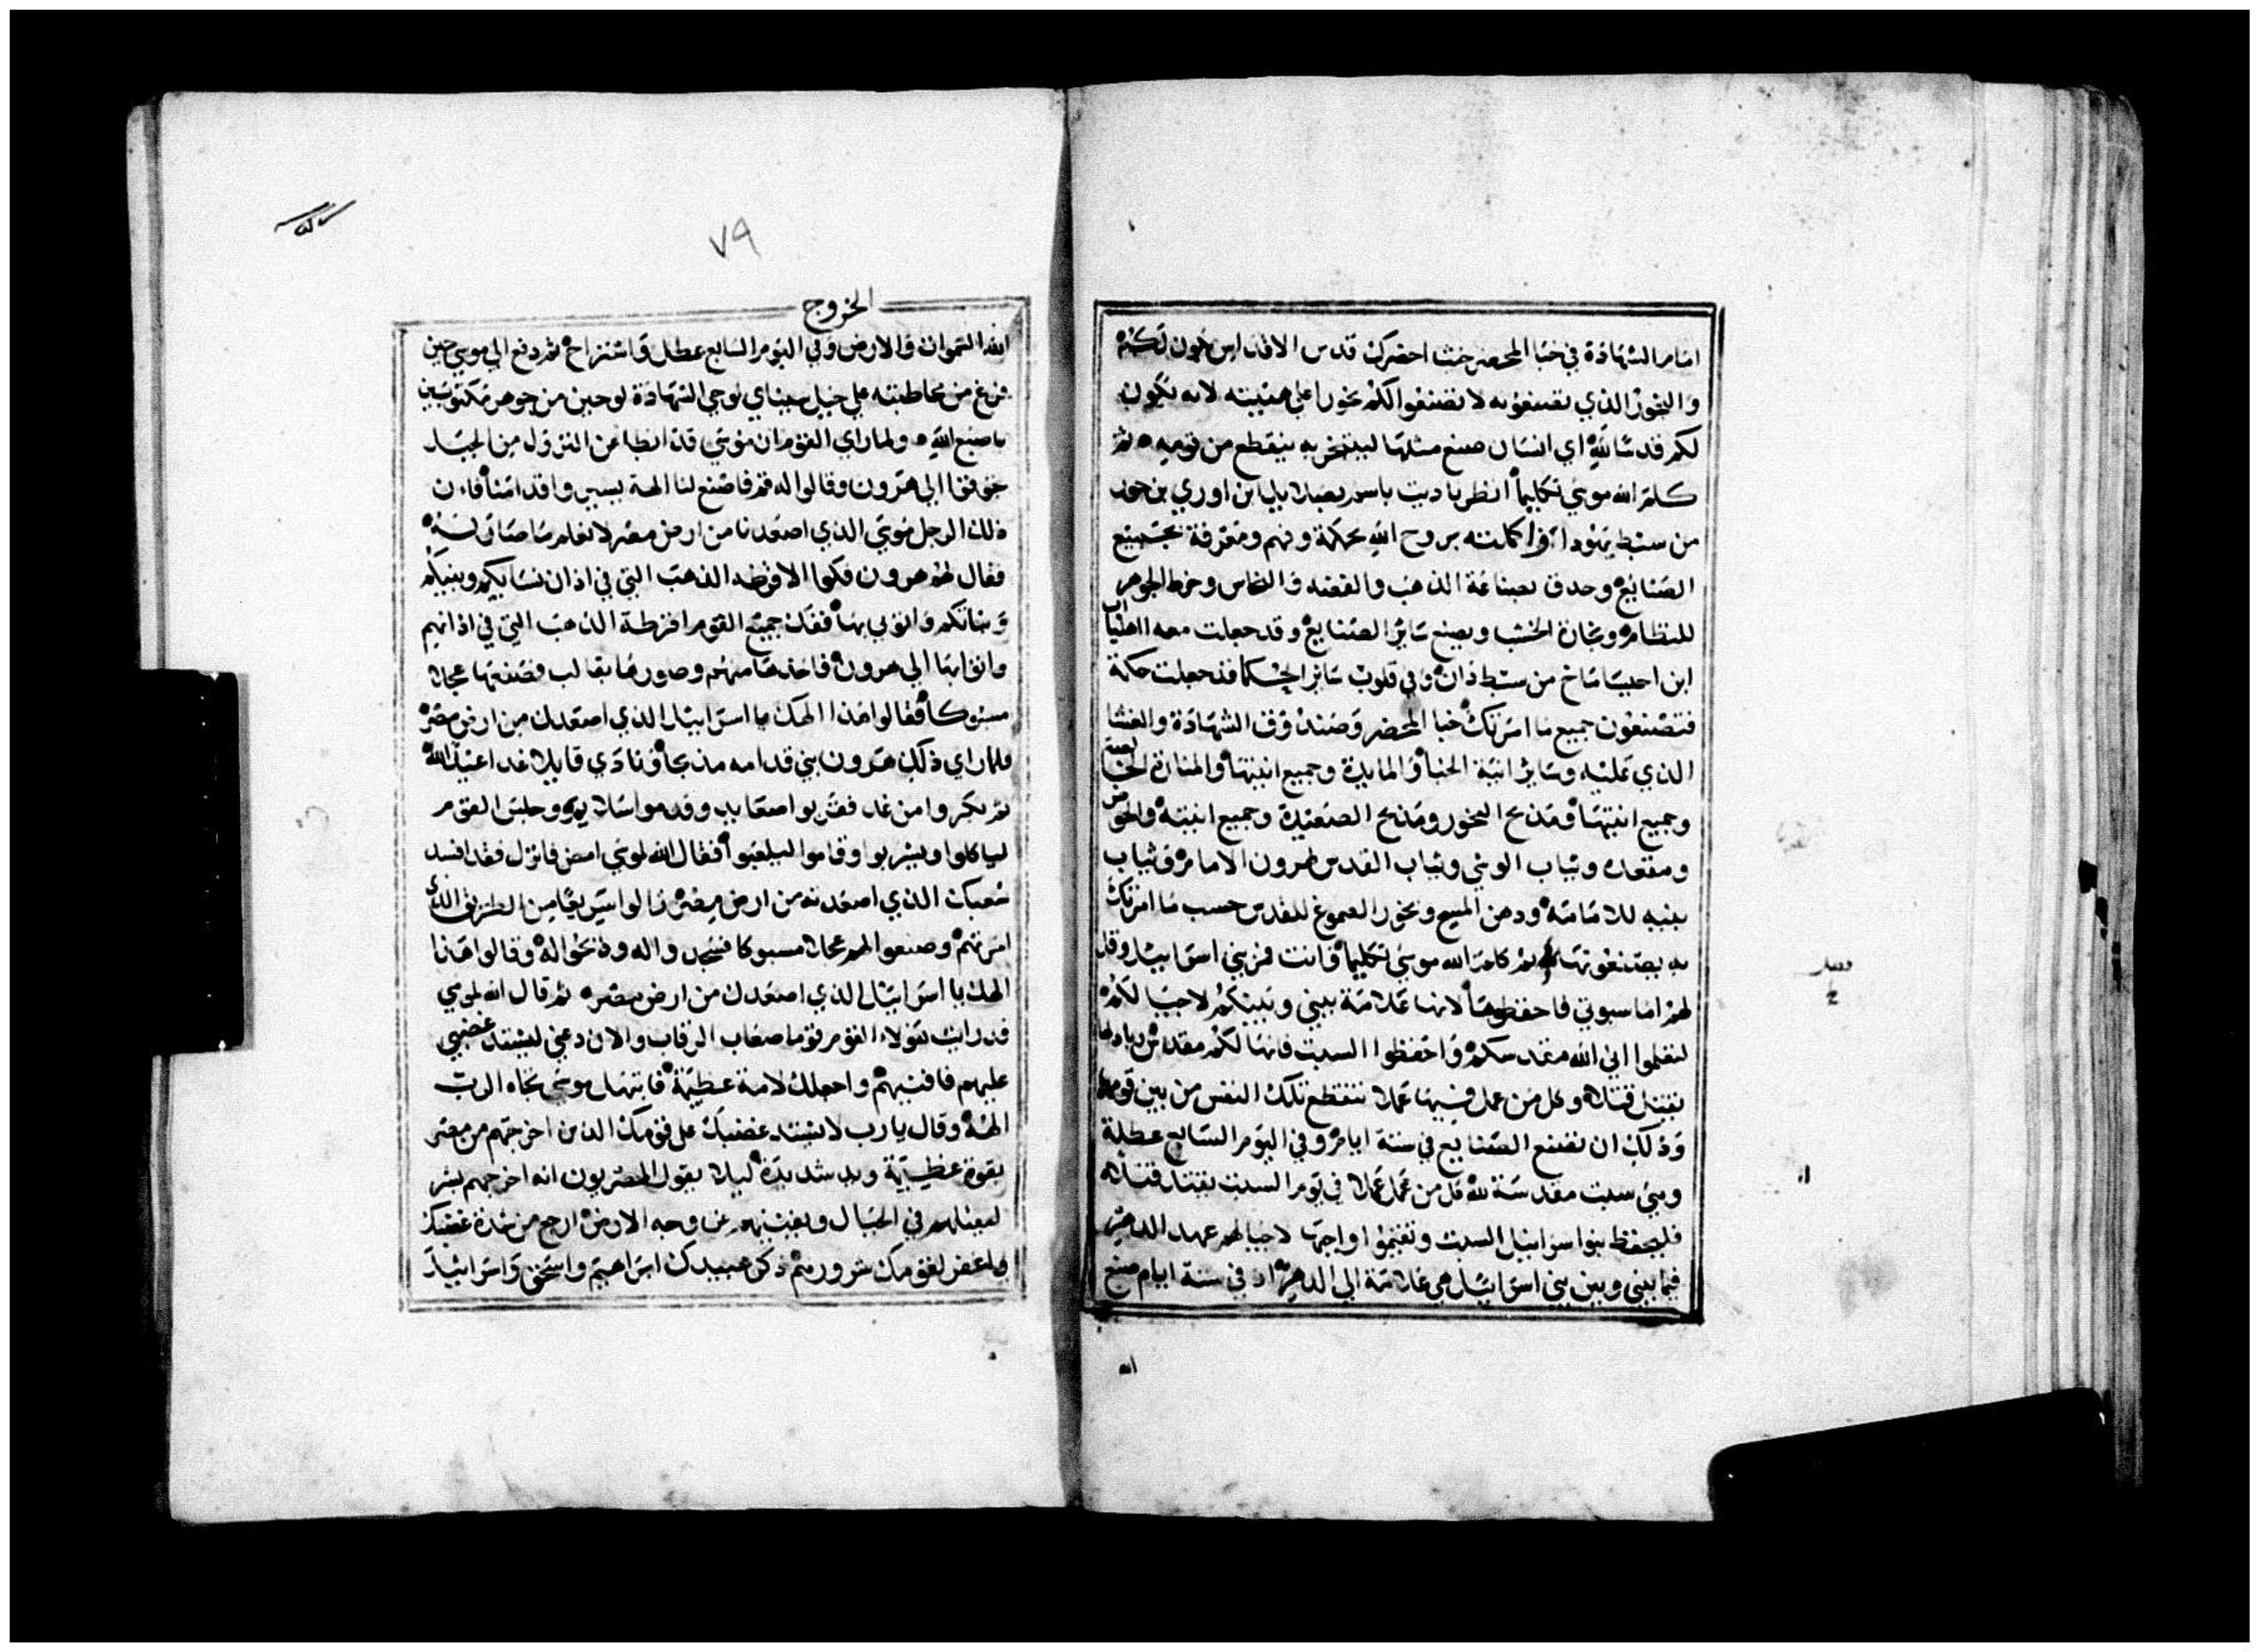 امام الشهادة في خبا المحضر حيث احضرك قدس الاقداس يكون لكم
والبخور الذي تصنعونه لا تصنعوا لكم بخورا على هيئته لانه يكون
لكم قدسا لله اي انسان صنع مثلها ليتبخر به ينقطع من قومه ثم
كلم الله موسي تكليما انظر ناديت باسم بصلائيل ابن اوري بن حور
من سبط يهودا واكملته بروح الله بحكمة وفهم ومعرفة بجميع
الصنايع وحدق بصناعة الذهب والفضه والنحاس وخرط الجوهر
للنظام ونجارة الخشب ويصنع ساير الصنايع وقد جعلت معه اهلياب
ابن احيساماخ من سبط دان وفي قلوب ساير الحكما قد جعلت حكمة
فتصنعون جميع ما امرتك خبا المحضر وصندوق الشهادة والغشا
الذي عليه وساير انية الخبا والمايدة وجميع انيتها والمنارة الخالصة
وجميع انيتها ومذبح البخور ومذبح الصعيدة وجميع انيته والحوض
ومقعده وثياب الوشي وثياب القدس لهرون الامام وثياب
بنيه للامامة ودهن المسح وبخور الصموغ للقدس حسب ما امرتك
به يصنعونها ثم كلم الله موسي تكليما وانت فمر بني اسراييل وقل
لهم اما سبوتي فاحفظوها لانها علامة بيني وبينكم لاجيالكم
لتعلموا اني الله مقدسكم واحفظوا السبت فانها لكم مقدس
يقتل قتلا وكل من عمل فيها عملا تنقطع تلك النفس من بين قومها
وذلك ان تصنع الصنايع في ستة ايام وفي اليوم السابع عطلة
وهي سبت مقدسة لله كل من عمل عملا في يوم السبت يقتل قتلا
فليحفظ بنوا سراييل السبت ويقيموا واجبها لاجيالهم عهد الدهر
فيما بيني وبين بني اسراييل هي علامة الي الدهر اذ في ستة ايام صنع
الله
٧٩
الخروج
الله السموات والارض وفي اليوم السابع عطل واستراح ثم دفع الي موسي حين
فرغ من مخاطبته علي جبل سيناي لوحي الشهادة لوحين من جوهر مكتوبين
باصبع الله ولما راي القوم ان موسي قد ابطا عن النزول من الجبل
جوقوا الي هرون وقالوا له قم فاصنع لنا الهة يسيروا قدامنا فان
ذلك الرجل موسي الذي اصعدنا من ارض مصر لا نعلم ما صار له
فقال لهم هرون فكوا الاقرطه الذهب التي في اذان نسايكم وبنيكم
وبناتكم واتوني بها ففك جميع القوم اقرطة الذهب التي في اذانهم
واتوا بها الي هرون فاخذها منهم وصورها بقالب فصنعها عجلا
مسبوكا فقالوا هذا الهك يا اسراييل الذي اصعدك من ارض مصر
فلما راي ذلك هرون بني قدامه مذبحا ونادي قايلا غدا عيد الله
ثم بكروا من غد فقربوا صعايد وقدموا سلايم وجلس القوم
لياكلوا ويشربوا وقاموا ليلعبوا فقال الله لموسي امض فانزل فقد افسد
شعبك الذي اصعدته من ارض مصر زالوا سريعا من الطريق الذي
امرتهم وصنعوا لهم عجلا مسبوكا فسجدوا له وذبحوا له وقالوا هذا
الهك يا اسراييل الذي اصعدك من ارض مصر ثم قال الله لموسي
قد رايت هولاء القوم قوما صعاب الرقاب والان دعني ليشتد غضبي
عليهم فافنيهم واجعلك لامة عظيمة فابتهل موسي تجاه الرب
الهه وقال يا رب لا يشتد غضبك على قومك الذين اخرجتهم من مصر
بقوة عظيمة ويد شديدة ليلا يقول المصريون انه اخرجهم بشر
ليقتلهم في الجبال ويفنيهم عن وجه الارض ارجع من شدة غضبك
واغفر لقومك شرورهم ذكر عبيدك ابراهيم واسحق واسراييل